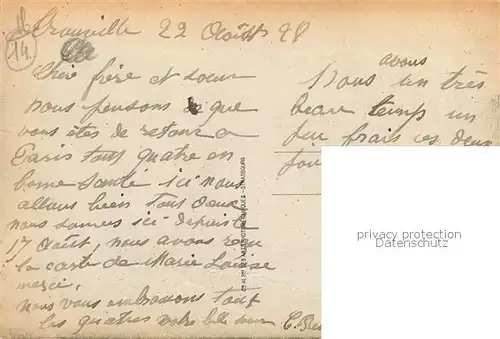 14.
Trouville 22 Août 28
Chère frère et soeur
nous pensons que
vous êtes de retour a
Paris tout quatre en
bonne santé ici nous
allons bien tous deux
nous sommes ici depuis le
17 Août, nous avons reçu
la carte de Marie Louise
merci.
nous vous embrassons tout
les quatres votre belle soeur C.
avons
Nous un très
beau temps un
peu frais ces deux
privacy protection
- STRASBOURG